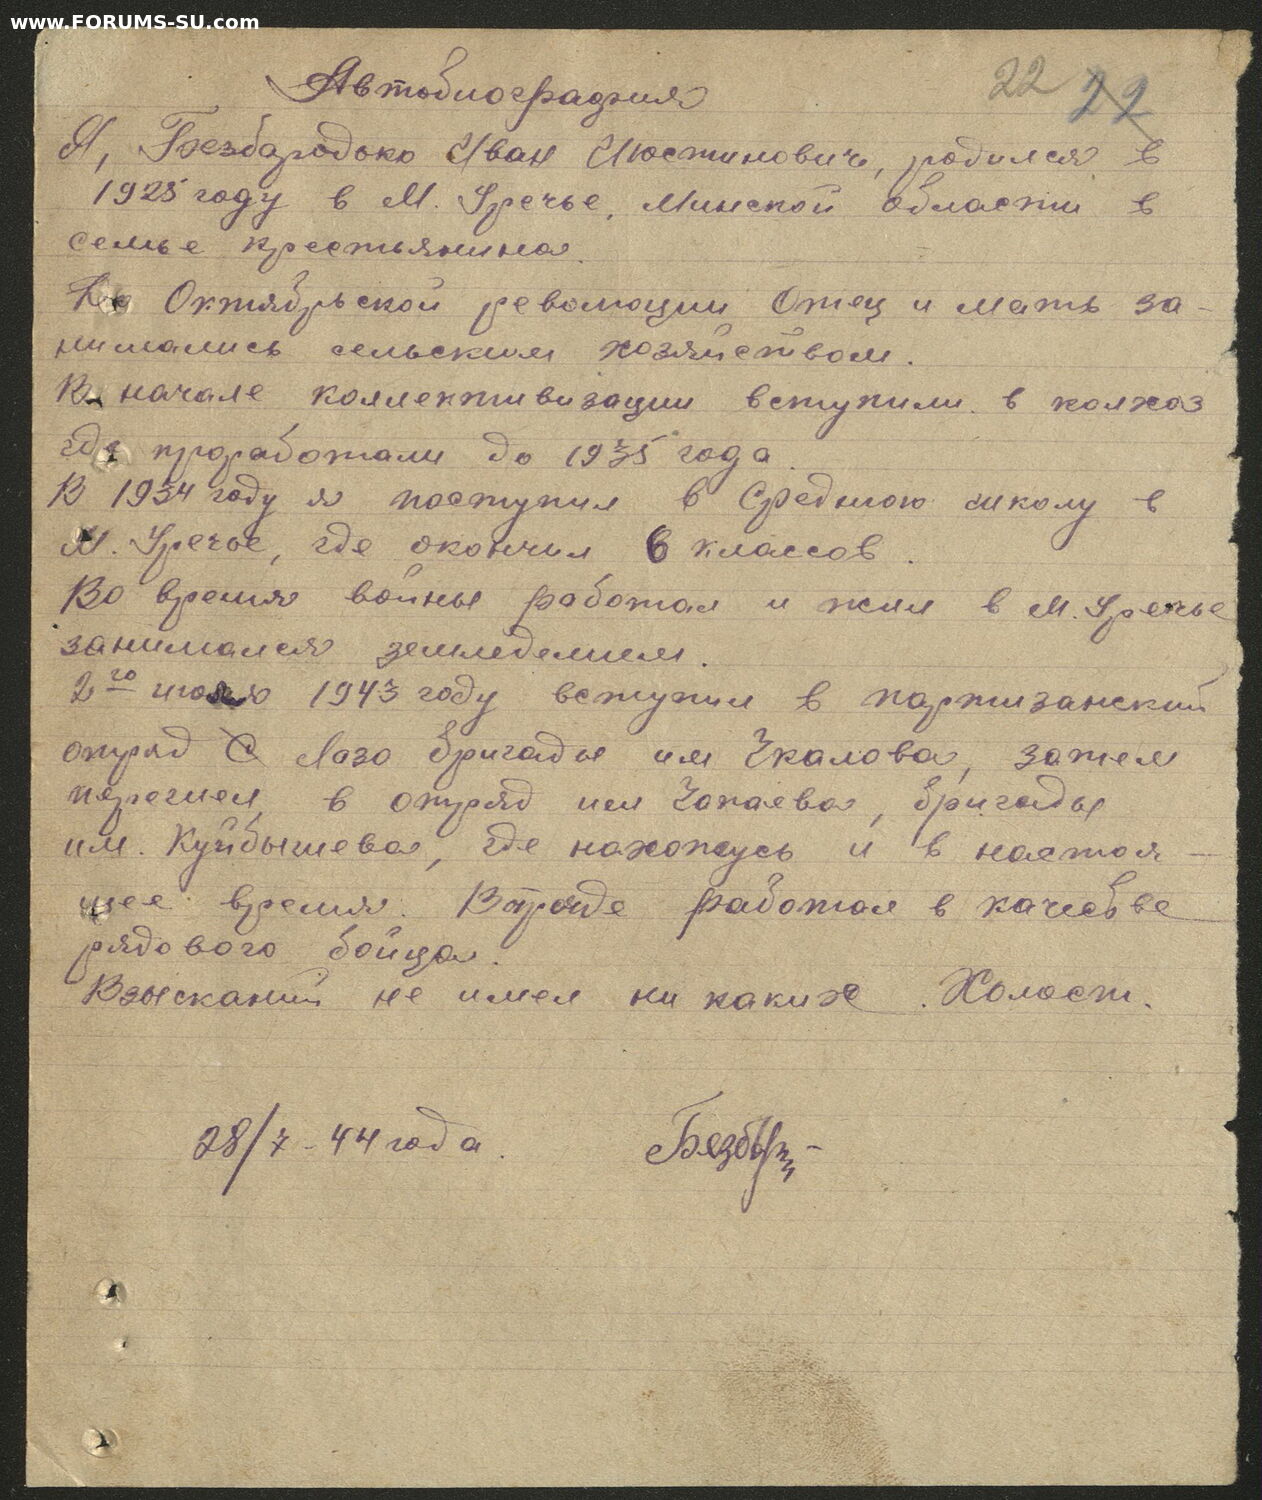 www.FORUMS-SU.com
22 22
Автобиография
Я, Безбародько Иван Июстинович, родился в
1925 году в М. Уречье, Минской области в
семье крестьянина.
До Октябрьской революции Отец и мать за-
нимались сельским хозяйством.
В начале коллективизации вступили в колхоз
где проработали до 1935 года.
В 1934 году я поступил в Среднюю школу в
М. Уречье, где окончил 6 классов.
Во время войны работал и жил в М. Уречье
занимался земледелием.
2го июля 1943 году вступил в партизанский
отряд Лазо бригады им Чкалова, затем
перешел в отряд им Чапаева, бригады
им. Куйбышева, где нахожусь и в настоя-
щее время. Вотряде работал в качестве
рядового бойца.
Взысканий не имел ни каких. Холост.
28/7-44 года.